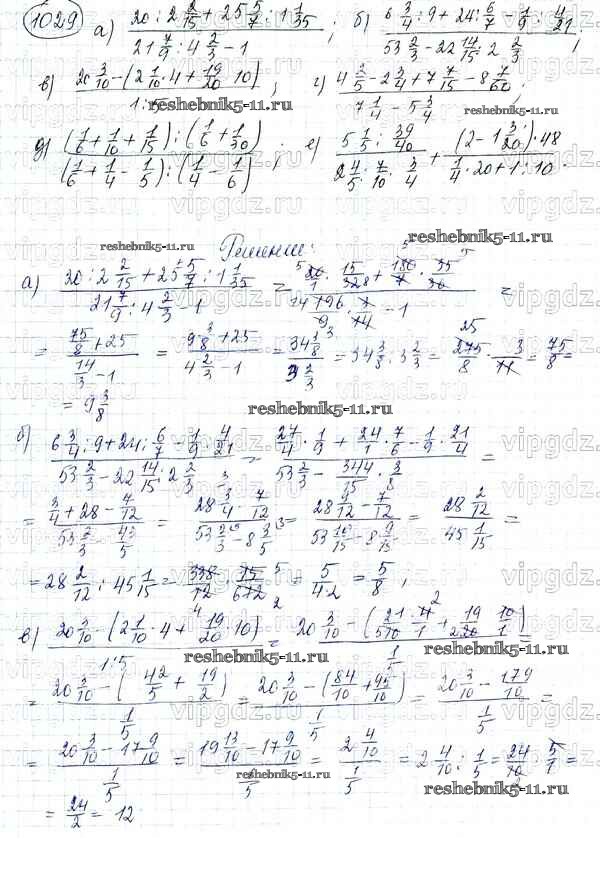 1029 а) (20 : 2 2/15 + 25 5/7 : 1 1/35) / (21 7/9 : 4 2/3 − 1) ; б) (6 3/4 : 9 + 24 : 6/7 − 1/9 : 4/21) / (53 2/3 − 22 14/15 : 2 2/3) ;
в) (20 3/10 − (2 1/10 · 4 + 19/20 · 10)) / (1 : 5) ; г) (4 2/5 − 2 3/4 + 7 7/15 − 8 7/60) / (7 1/4 − 5 3/4) ;
д) ((1/6 + 1/10 + 1/15) : (1/6 + 1/30)) / ((1/6 + 1/4 − 1/5) : (1/4 − 1/6)) ; е) (5 1/5 : 39/40) / (2 4/5 · 7/10 · 3/4) + ((2 − 1 3/20) · 48) / (1/4 · 20 + 1 : 10)
reshebnik5-11.ru
Решение:
а) (20 : 2 2/15 + 25 5/7 : 1 1/35) / (21 7/9 : 4 2/3 − 1) =
= (75/8 + 25) / (14/3 − 1) = (9 3/8 + 25) / (4 2/3 − 1) = 34 3/8 / 3 2/3 = 34 3/8 : 3 2/3 = 275/8 · 3/11 = 75/8 =
= 9 3/8
reshebnik5-11.ru
б) (6 3/4 : 9 + 24 : 6/7 − 1/9 : 4/21) / (53 2/3 − 22 14/15 : 2 2/3) = (27/4 · 1/9 + 24/1 · 7/6 − 1/9 · 21/4) / (53 2/3 − 344/15 · 3/8) =
= (3/4 + 28 − 7/12) / (53 2/3 − 43/5) = (28 3/4 − 7/12) / (53 2/3 − 8 3/5) = (28 9/12 − 7/12) / (53 10/15 − 8 9/15) = 28 2/12 / 45 1/15 =
= 28 2/12 : 45 1/15 = 338/12 · 15/676 = 5/(4·2) = 5/8 ;
в) (20 3/10 − (2 1/10 · 4 + 19/20 · 10)) / (1 : 5) = (20 3/10 − (21/10 · 4/1 + 19/20 · 10/1)) / (1/5) =
reshebnik5-11.ru
= (20 3/10 − (42/5 + 19/2)) / (1/5) = (20 3/10 − (84/10 + 95/10)) / (1/5) = (20 3/10 − 179/10) / (1/5) =
= (20 3/10 − 17 9/10) / (1/5) = (19 13/10 − 17 9/10) / (1/5) = 2 4/10 / (1/5) = 2 4/10 : 1/5 = 24/10 · 5/1 =
= 24/2 = 12
reshebnik5-11.ru